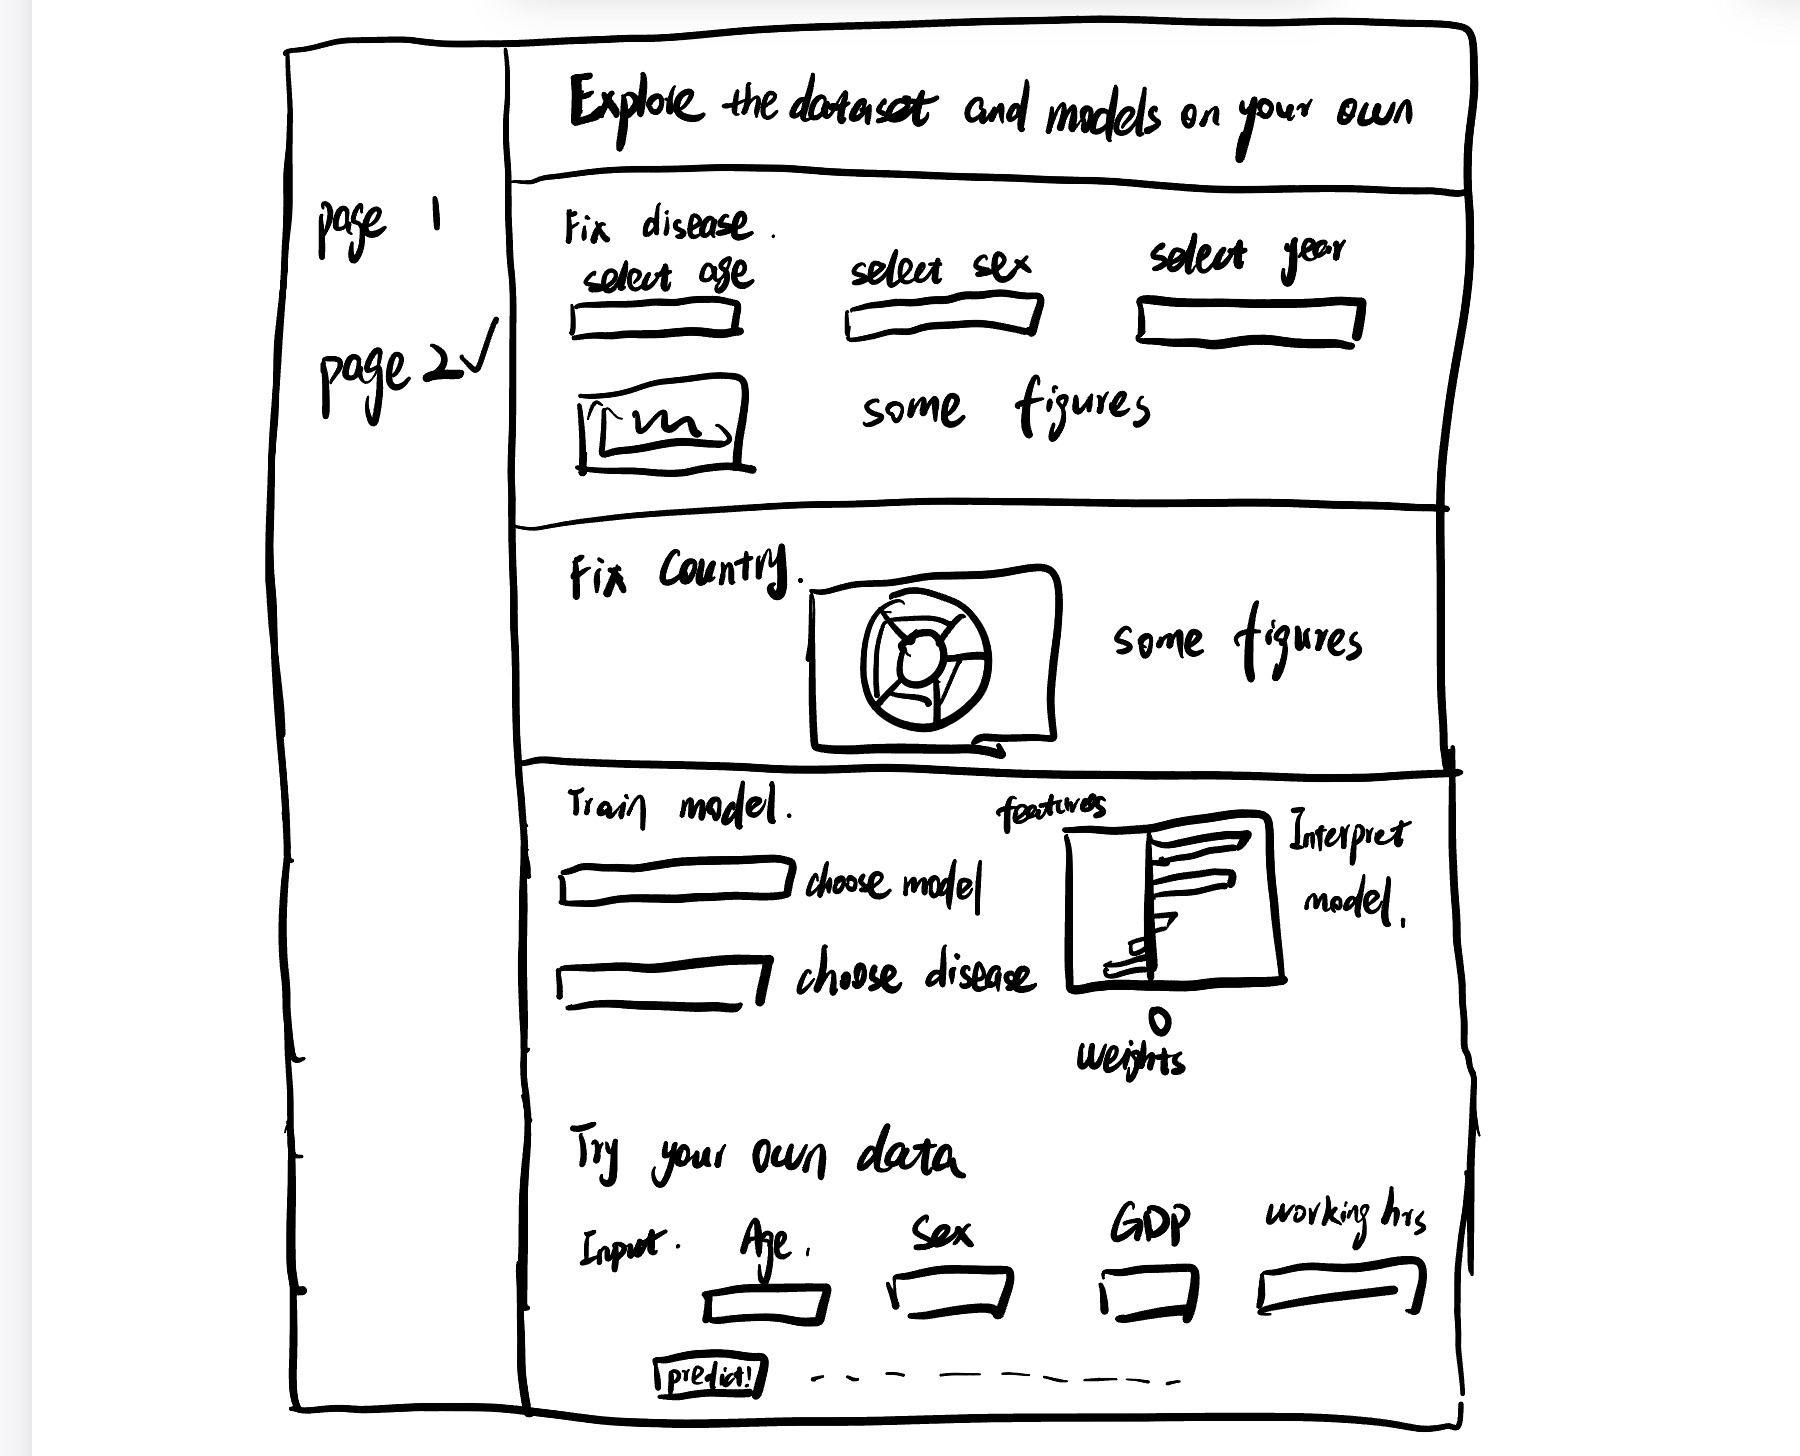 Explore the dataset and models on your own
page 1
page 2
Fix disease.
select age
select sex
select year
some figures
Fix Country.
some figures
Train model.
choose model
choose disease
features
Interpret
model.
0
weights
Try your own data
Input.
Age.
Sex
GDP
working hrs
predict!